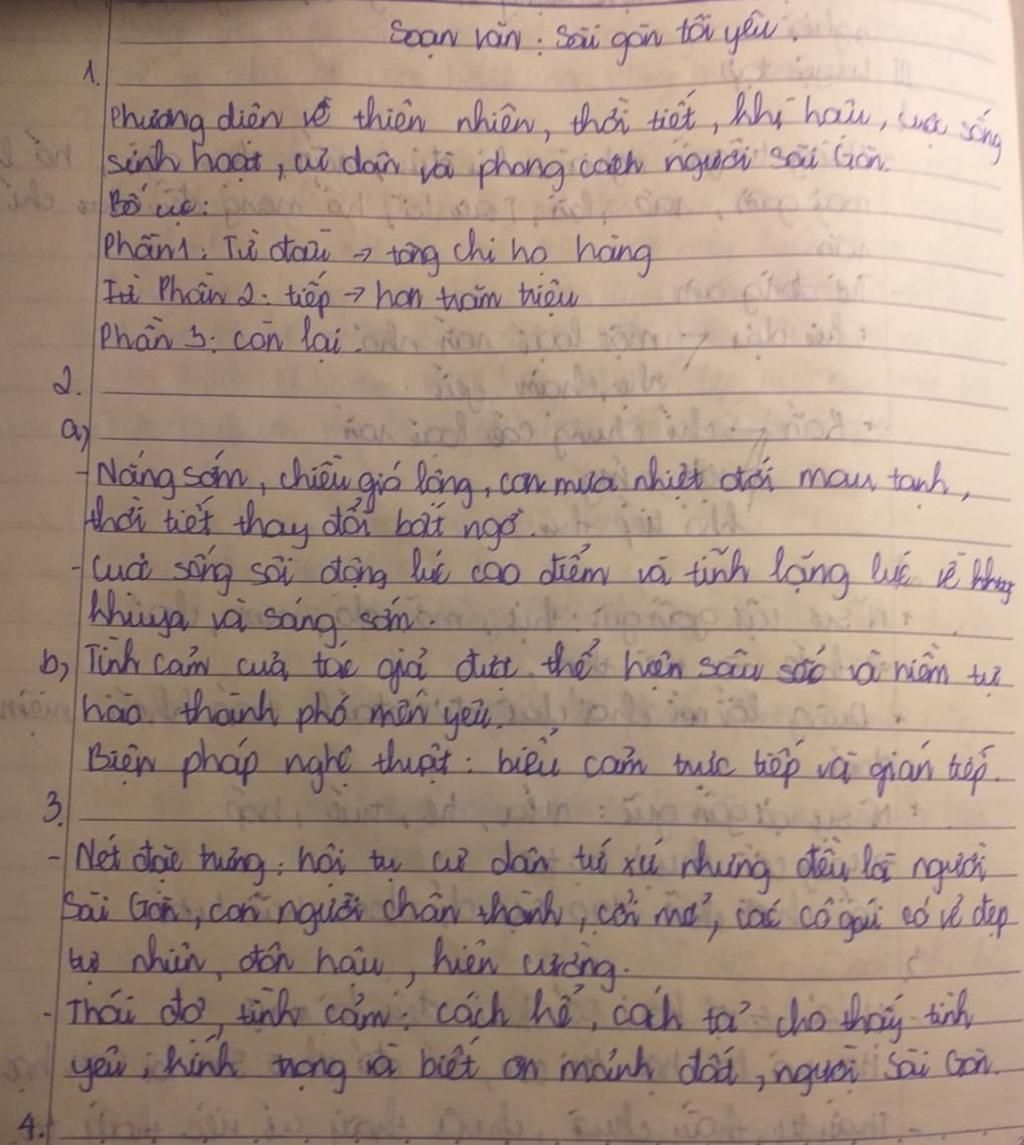 Soạn văn: Sài gòn tôi yêu.
1.
Phương diện về thiên nhiên, thời tiết, khí hậu, cuộc sống
sinh hoạt, cư dân và phong cách người Sài Gòn.
Bố cục:
Phần 1: Từ đầu → tông chi họ hàng
Từ Phần 2: tiếp → hơn trăm triệu
Phần 3: còn lại.
2.
a)
- Nắng sớm, chiều gió lộng, cơn mưa nhiệt đới mau tạnh,
thời tiết thay đổi bất ngờ.
- Cuộc sống sôi động lúc cao điểm và tĩnh lặng lúc về
khuya và sáng sớm.
b) Tình cảm của tác giả được thể hiện sâu sắc và niềm tự
hào thành phố mến yêu.
Biện pháp nghệ thuật: biểu cảm trực tiếp và gián tiếp.
3.
- Nét đặc trưng: hội tụ cư dân tứ xứ nhưng đều là người
Sài Gòn, con người chân thành, cởi mở, các cô gái có vẻ đẹp
tự nhiên, đôn hậu, hiên cường.
- Thái độ, tình cảm: cách kể, cách tả cho thấy tình
yêu, kính trọng và biết ơn mảnh đất, người Sài Gòn.
4.